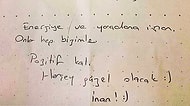 Enerjiye ve yaradana inan.
Onla hep bizimle
Pozitif kal.
Herşey güzel olacak :)
İnan! :)